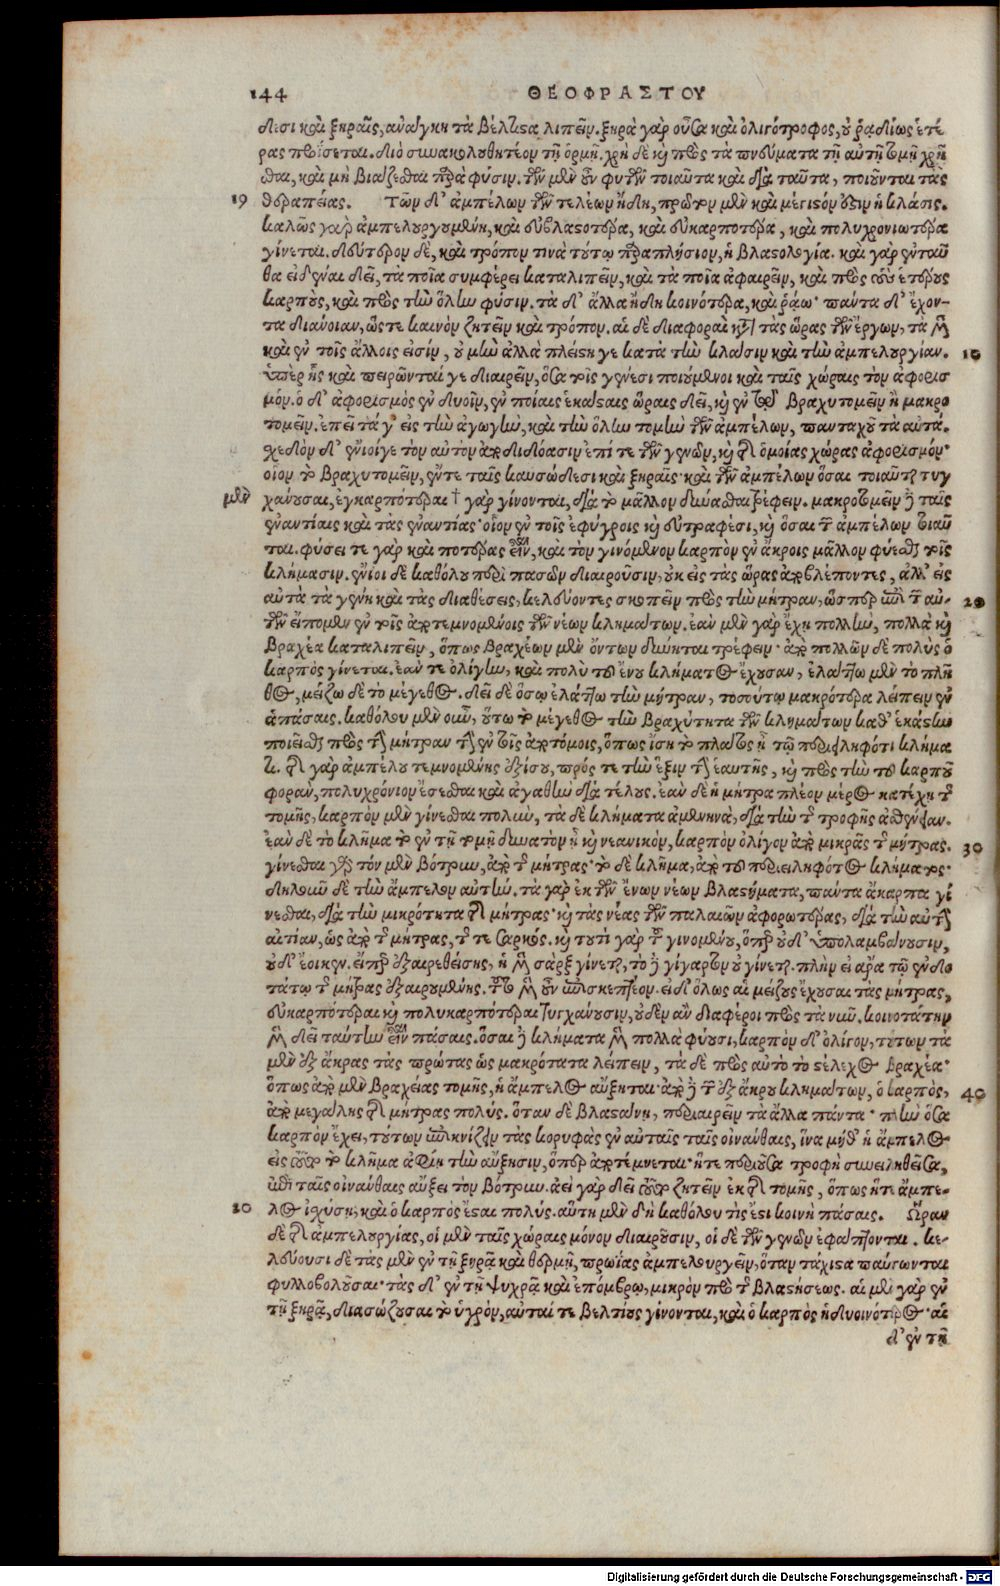 144 ΘΕΟΦΡΑΣΤΟΥ
δεσι καὶ ξηραῖς, ἀνάγκη τὰ βέλτιστα λιπεῖν. ξηρὰ γὰρ οὖσα καὶ ὀλιγότροφος, οὐ ῥαδίως ἑτέ
ρας προΐσεται. διὸ συνακολουθητέον τῇ ὁρμῇ. χρὴ δὲ καὶ πρὸς τὰ πνεύματα τῇ αὐτῇ τομῇ χρῆ
σθαι, καὶ μὴ βιάζεσθαι παρὰ φύσιν. τῶν μὲν οὖν φυτῶν τοιαῦτα καὶ διὰ ταῦτα, ποιοῦνται τὰς
19 θεραπείας. Τῶν δ' ἀμπέλων τῶν τελέων ἤδη, πρῶτον μὲν καὶ μέγιστόν ἐστιν ἡ κλάσις.
καλῶς γὰρ ἀμπελουργουμένη, καὶ εὐβλαστοτέρα, καὶ εὐκαρποτέρα, καὶ πολυχρονιωτέρα
γίνεται. δεύτερον δὲ, καὶ τρόπον τινὰ τούτῳ παραπλήσιον, ἡ βλαστολογία. καὶ γὰρ ἐνταῦ
θα εἰδέναι δεῖ, τὰ ποῖα συμφέρει καταλιπεῖν, καὶ τὰ ποῖα ἀφαιρεῖν, καὶ πρὸς τοὺς ἑτέρους
καρποὺς, καὶ πρὸς τὴν ὅλην φύσιν. τὰ δ' ἄλλα ἤδη κοινότερα, καὶ ῥάω· πάντα δ' ἔχον-
τα διάνοιαν, ὥστε καινὸν ζητεῖν καὶ τρόπον. αἱ δὲ διαφοραὶ κατὰ τὰς ὥρας τῶν ἔργων, τὰ μὲν
καὶ ἐν τοῖς ἄλλοις εἰσίν, οὐ μὴν ἀλλὰ πλείστη γε κατὰ τὴν κλάσιν καὶ τὴν ἀμπελουργίαν. 10
ὑπὲρ ἧς καὶ πειρῶνταί γε διαιρεῖν, ὅσα τοῖς γένεσι ποιούμενοι καὶ ταῖς χώραις τὸν ἀφορισ
μόν. ὁ δ' ἀφορισμὸς ἐν δυοῖν, ἐν ποίαις ἑκάσταις ὥραις δεῖ, καὶ ἐν τῷ βραχυτομεῖν ἢ μακρο
τομεῖν. ἐπεὶ τά γ' εἰς τὴν ἀγωγὴν, καὶ τὴν ὅλην τομὴν τῶν ἀμπέλων, πανταχοῦ τὰ αὐτά.
σχεδὸν δ' ἔνιοίγε τὸν αὐτὸν ἀποδιδόασιν ἐπί τε τῶν γενῶν, καὶ τῆς ὁμοίας χώρας ἀφορισμόν·
οἷον τὸ βραχυτομεῖν, ἔν τε ταῖς καυσώδεσι καὶ ξηραῖς· καὶ τῶν ἀμπέλων ὅσαι τοιαῦται τυγ
μὲν χάνουσαι, ἐγκαρπότεραι † γὰρ γίνονται, διὰ τὸ μᾶλλον δύνασθαι τρέφειν. μακροτομεῖν δὲ ταῖς
ἐναντίαις καὶ τὰς ἐναντίας· οἷον ἐν τοῖς ἐφύγροις καὶ εὐτραφέσι, καὶ ὅσαι τῶν ἀμπέλων τοιαῦ
ται. φύσει τε γὰρ καὶ ποτέρας εἶναι, καὶ τὸν γινόμενον καρπὸν ἐν ἄκροις μᾶλλον φύεσθαι τοῖς
κλήμασιν. ἔνιοι δὲ καθόλου περὶ πασῶν διαιροῦσιν, οὐκ εἰς τὰς ὥρας ἀποβλέποντες, ἀλλ' εἰς
αὐτὰ τὰ γένη καὶ τὰς διαθέσεις, κελεύοντες σκοπεῖν πρὸς τὴν μήτραν, ὥσπερ ἐπὶ τῶν αὐ- 20
τῶν εἴπομεν ἐν τοῖς ἀποτεμνομένοις τῶν νέων κλημάτων. ἐὰν μὲν γὰρ ἔχῃ πολλὴν, πολλὰ καὶ
βραχέα καταλιπεῖν, ὅπως βραχέων μὲν ὄντων δύνηται τρέφειν· ἀπὸ πολλῶν δὲ πολὺς ὁ
καρπὸς γίνεται. ἐάν τε ὀλίγην, καὶ πολὺ τοῦ ἔνου κλήματος ἔχουσαν, ἐλάττω μὲν τὸ πλῆ
θος, μείζω δὲ τὸ μέγεθος. δεῖ δὲ ὅσῳ ἐλάττω τὴν μήτραν, τοσούτῳ μακρότερα λείπειν ἐν
ἁπάσαις. καθόλου μὲν οὖν, οὕτω τὸ μέγεθος τὴν βραχύτητα τῶν κλημάτων καθ' ἑκάστην
ποιεῖσθαι πρὸς τὴν μήτραν τὴν ἐν τοῖς ἀποτόμοις, ὅπως ἴση τὸ πλάτος ᾖ τῷ περιειληφότι κλήμα
τι. τῆς γὰρ ἀμπέλου τεμνομένης ἐξίσου, πρός τε τὴν ἕξιν τὴν ἑαυτῆς, καὶ πρὸς τὴν τοῦ καρποῦ
φορὰν, πολυχρόνιον ἔσεσθαι καὶ ἀγαθὴν διὰ τέλους. ἐὰν δὲ ἡ μήτρα πλέον μέρος κατέχῃ τῆς
τομῆς, καρπὸν μὲν γίνεσθαι πολὺν, τὰ δὲ κλήματα ἀμενηνὰ, διὰ τὴν τῆς τροφῆς ἀσθένειαν.
ἐὰν δὲ τὸ κλῆμα τὸ ἐν τῇ τομῇ δυνατὸν ᾖ καὶ νεανικὸν, καρπὸν ὀλίγον ἀπὸ μικρᾶς τῆς μήτρας. 30
γίνεσθαι γὰρ τὸν μὲν βότρυν, ἀπὸ τῆς μήτρας· τὸ δὲ κλῆμα, ἀπὸ τοῦ περιειληφότος κλήματος·
δηλοῦν δὲ τὴν ἄμπελον αὐτήν. τὰ γὰρ ἐκ τῶν ἔνων νέων βλαστήματα, πάντα ἄκαρπα γί
νεσθαι, διὰ τὴν μικρότητα τῆς μήτρας· καὶ τὰς νέας τῶν παλαιῶν ἀφορωτέρας, διὰ τὴν αὐτὴν
αἰτίαν, ὡς ἀπὸ τῆς μήτρας, τῆς τε σαρκός. καὶ τουτὶ γὰρ τοῦ γινομένου, ὅπερ οὐδ' ὑπολαμβάνουσιν,
οὐδ' ἔοικεν. εἴπερ ἐξαιρεθείσης, ἡ μὲν σὰρξ γίνεται, τὸ δὲ γίγαρτον οὐ γίνεται. πλὴν εἰ ἄρα τῷ ἐνδο
τάτῳ τῆς μήτρας ἐξαιρουμένης. τοῦτο μὲν οὖν ἐπισκεπτέον. εἰ δ' ὅλως αἱ μείζους ἔχουσαι τὰς μήτρας,
εὐκαρπότεραι καὶ πολυκαρπότεραι τυγχάνουσιν, οὐδὲν ἂν διαφέροι πρὸς τὰ νῦν. κοινοτάτην
μὲν δεῖ ταύτην εἶναι πάσαις. ὅσαι δὲ κλήματα μὲν πολλὰ φύουσι, καρπὸν δ' ὀλίγον, τούτων τὰ
μὲν ἐξ ἄκρας τὰς πρώτας ὡς μακρότατα λείπειν, τὰ δὲ πρὸς αὐτὸ τὸ στέλεχος βραχέα·
ὅπως ἀπὸ μὲν βραχείας τομῆς, ἡ ἄμπελος αὔξηται· ἀπὸ δὲ τῶν ἐξ ἄκρου κλημάτων, ὁ καρπὸς, 40
ἀπὸ μεγάλης τῆς μήτρας πολύς. ὅταν δὲ βλαστάνῃ, περιαιρεῖν τὰ ἄλλα πάντα· πλὴν ὅσα
καρπὸν ἔχει, τούτων ἐπικνίζειν τὰς κορυφὰς ἐν αὐταῖς ταῖς οἰνάνθαις, ἵνα μήθ' ἡ ἄμπελος
εἰς τοῦτο τὸ κλῆμα ἀφίῃ τὴν αὔξησιν, ὅπερ ἀποτέμνεται· ἥτε περιοῦσα τροφὴ συνειληθεῖσα,
ἐπὶ ταῖς οἰνάνθαις αὔξει τὸν βότρυν. ἀεὶ γὰρ δεῖ τοῦτο ζητεῖν ἐκ τῆς τομῆς, ὅπως ἥτε ἄμπε-
20 λος ἰσχύσῃ, καὶ ὁ καρπὸς ἔσται πολύς. αὕτη μὲν δὴ καθόλου τὶς ἐστι κοινὴ πάσαις. Ὥραν
δὲ τῆς ἀμπελουργίας, οἱ μὲν ταῖς χώραις μόνον διαιροῦσιν, οἱ δὲ τῶν γενῶν ἐφάπτονται. κε-
λεύουσι δὲ τὰς μὲν ἐν τῇ ξηρᾷ καὶ θερμῇ, πρωΐας ἀμπελουργεῖν, ὅταν τάχιστα παύσωνται
φυλλοβολοῦσαι· τὰς δ' ἐν τῇ ψυχρᾷ καὶ ἐπόμβρῳ, μικρὸν πρὸ τῆς βλαστήσεως. αἱ μὲν γὰρ ἐν
τῇ ξηρᾷ, διασώζουσαι τὸ ὑγρὸν, αὗταί τε βελτίους γίνονται, καὶ ὁ καρπὸς ἡδυοινότερος· αἱ
δ' ἐν τῇ
Digitalisierung gefördert durch die Deutsche Forschungsgemeinschaft - DFG